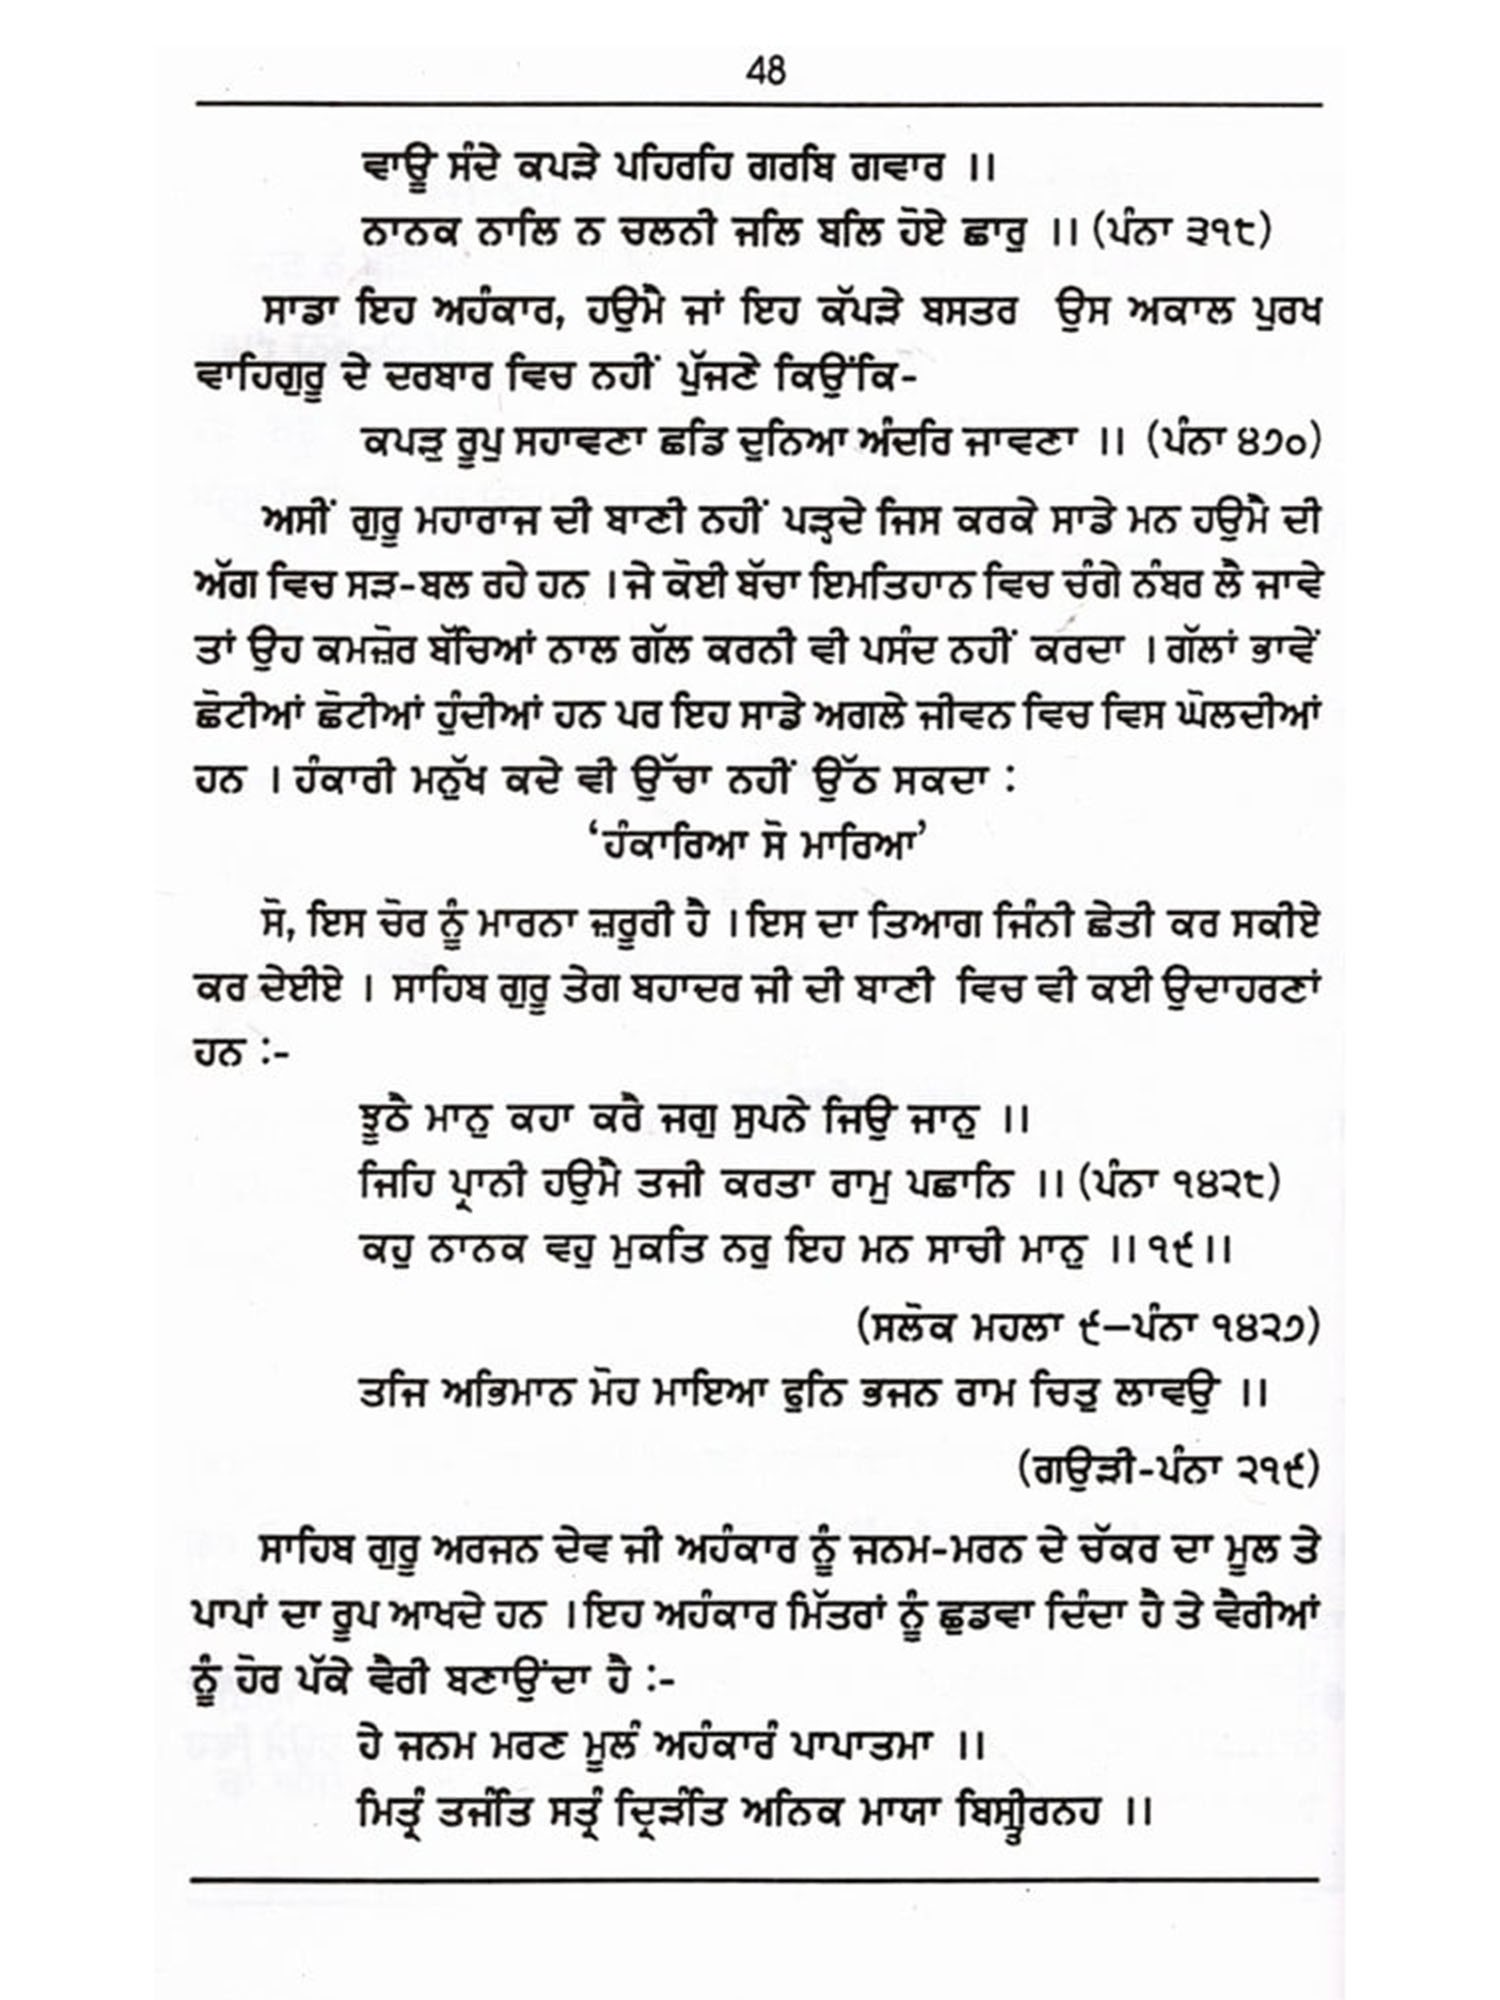 48
ਵਾਊ ਸੰਦੇ ਕਪੜੇ ਪਹਿਰਹਿ ਗਰਬਿ ਗਵਾਰ ।।
ਨਾਨਕ ਨਾਲਿ ਨ ਚਲਨੀ ਜਲਿ ਬਲਿ ਹੋਏ ਛਾਰੁ ।। (ਪੰਨਾ ੩੧੮)
ਸਾਡਾ ਇਹ ਅਹੰਕਾਰ, ਹਉਮੈ ਜਾਂ ਇਹ ਕੱਪੜੇ ਬਸਤਰ ਉਸ ਅਕਾਲ ਪੁਰਖ
ਵਾਹਿਗੁਰੂ ਦੇ ਦਰਬਾਰ ਵਿਚ ਨਹੀਂ ਪੁੱਜਣੇ ਕਿਉਂਕਿ-
ਕਪੜੁ ਰੂਪੁ ਸਹਾਵਣਾ ਛਡਿ ਦੁਨਿਆ ਅੰਦਰਿ ਜਾਵਣਾ ।। (ਪੰਨਾ ੪੭੦)
ਅਸੀਂ ਗੁਰੂ ਮਹਾਰਾਜ ਦੀ ਬਾਣੀ ਨਹੀਂ ਪੜ੍ਹਦੇ ਜਿਸ ਕਰਕੇ ਸਾਡੇ ਮਨ ਹਉਮੈ ਦੀ
ਅੱਗ ਵਿਚ ਸੜ-ਬਲ ਰਹੇ ਹਨ । ਜੇ ਕੋਈ ਬੱਚਾ ਇਮਤਿਹਾਨ ਵਿਚ ਚੰਗੇ ਨੰਬਰ ਲੈ ਜਾਵੇ
ਤਾਂ ਉਹ ਕਮਜ਼ੋਰ ਬੱਚਿਆਂ ਨਾਲ ਗੱਲ ਕਰਨੀ ਵੀ ਪਸੰਦ ਨਹੀਂ ਕਰਦਾ । ਗੱਲਾਂ ਭਾਵੇਂ
ਛੋਟੀਆਂ ਛੋਟੀਆਂ ਹੁੰਦੀਆਂ ਹਨ ਪਰ ਇਹ ਸਾਡੇ ਅਗਲੇ ਜੀਵਨ ਵਿਚ ਵਿਸ ਘੋਲਦੀਆਂ
ਹਨ । ਹੰਕਾਰੀ ਮਨੁੱਖ ਕਦੇ ਵੀ ਉੱਚਾ ਨਹੀਂ ਉੱਠ ਸਕਦਾ :
‘ਹੰਕਾਰਿਆ ਸੋ ਮਾਰਿਆ’
ਸੋ, ਇਸ ਚੋਰ ਨੂੰ ਮਾਰਨਾ ਜ਼ਰੂਰੀ ਹੈ । ਇਸ ਦਾ ਤਿਆਗ ਜਿੰਨੀ ਛੇਤੀ ਕਰ ਸਕੀਏ
ਕਰ ਦੇਈਏ । ਸਾਹਿਬ ਗੁਰੂ ਤੇਗ ਬਹਾਦਰ ਜੀ ਦੀ ਬਾਣੀ ਵਿਚ ਵੀ ਕਈ ਉਦਾਹਰਣਾਂ
ਹਨ :-
ਝੂਠੈ ਮਾਨੁ ਕਹਾ ਕਰੈ ਜਗੁ ਸੁਪਨੇ ਜਿਉ ਜਾਨੁ ।।
ਜਿਹਿ ਪ੍ਰਾਨੀ ਹਉਮੈ ਤਜੀ ਕਰਤਾ ਰਾਮੁ ਪਛਾਨਿ ।। (ਪੰਨਾ ੧੪੨੮)
ਕਹੁ ਨਾਨਕ ਵਹੁ ਮੁਕਤਿ ਨਰੁ ਇਹ ਮਨ ਸਾਚੀ ਮਾਨੁ ।। ੧੯ ।।
(ਸਲੋਕ ਮਹਲਾ ੯—ਪੰਨਾ ੧੪੨੭)
ਤਜਿ ਅਭਿਮਾਨ ਮੋਹ ਮਾਇਆ ਫੁਨਿ ਭਜਨ ਰਾਮ ਚਿਤੁ ਲਾਵਉ ।।
(ਗਉੜੀ-ਪੰਨਾ ੨੧੯)
ਸਾਹਿਬ ਗੁਰੂ ਅਰਜਨ ਦੇਵ ਜੀ ਅਹੰਕਾਰ ਨੂੰ ਜਨਮ-ਮਰਨ ਦੇ ਚੱਕਰ ਦਾ ਮੂਲ ਤੇ
ਪਾਪਾਂ ਦਾ ਰੂਪ ਆਖਦੇ ਹਨ । ਇਹ ਅਹੰਕਾਰ ਮਿੱਤਰਾਂ ਨੂੰ ਛੁਡਵਾ ਦਿੰਦਾ ਹੈ ਤੇ ਵੈਰੀਆਂ
ਨੂੰ ਹੋਰ ਪੱਕੇ ਵੈਰੀ ਬਣਾਉਂਦਾ ਹੈ :-
ਹੇ ਜਨਮ ਮਰਣ ਮੂਲੰ ਅਹੰਕਾਰੰ ਪਾਪਾਤਮਾ ।।
ਮਿਤ੍ਰੰ ਤਜੰਤਿ ਸਤ੍ਰੰ ਦ੍ਰਿੜੰਤਿ ਅਨਿਕ ਮਾਯਾ ਬਿਸ੍ਤੀਰਨਹ ।।